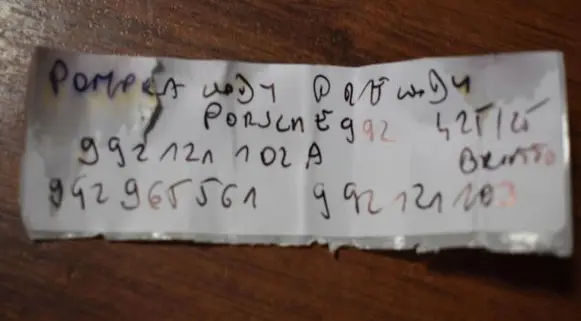 POMPKA WODY PRZ WODY
PORSCHE 992 425/25
992 121 102 A BRUTTO
992 965 561 992 121 103